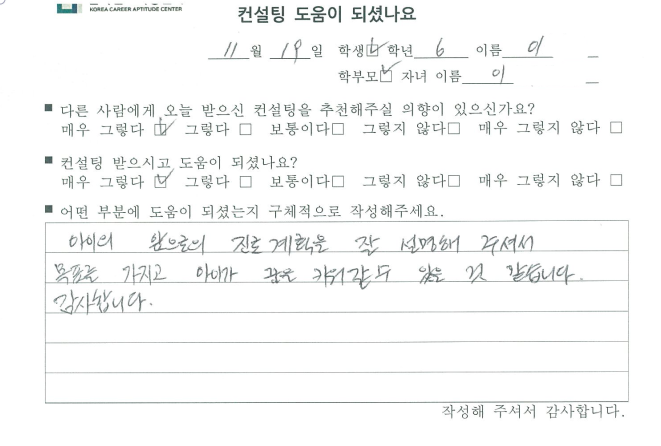 KOREA CAREER APTITUDE CENTER
컨설팅 도움이 되셨나요
11 월 19 일 학생☑ 학년 6 이름 이
학부모☑ 자녀 이름 이
■ 다른 사람에게 오늘 받으신 컨설팅을 추천해주실 의향이 있으신가요?
매우 그렇다 ☑ 그렇다 □ 보통이다□ 그렇지 않다□ 매우 그렇지 않다 □
■ 컨설팅 받으시고 도움이 되셨나요?
매우 그렇다 ☑ 그렇다 □ 보통이다□ 그렇지 않다□ 매우 그렇지 않다 □
■ 어떤 부분에 도움이 되셨는지 구체적으로 작성해주세요.
아이의 앞으로의 진로계획을 잘 설명해 주셔서
목표를 가지고 아이가 꿈을 키워갈수 있을 것 같습니다.
감사합니다.
작성해 주셔서 감사합니다.